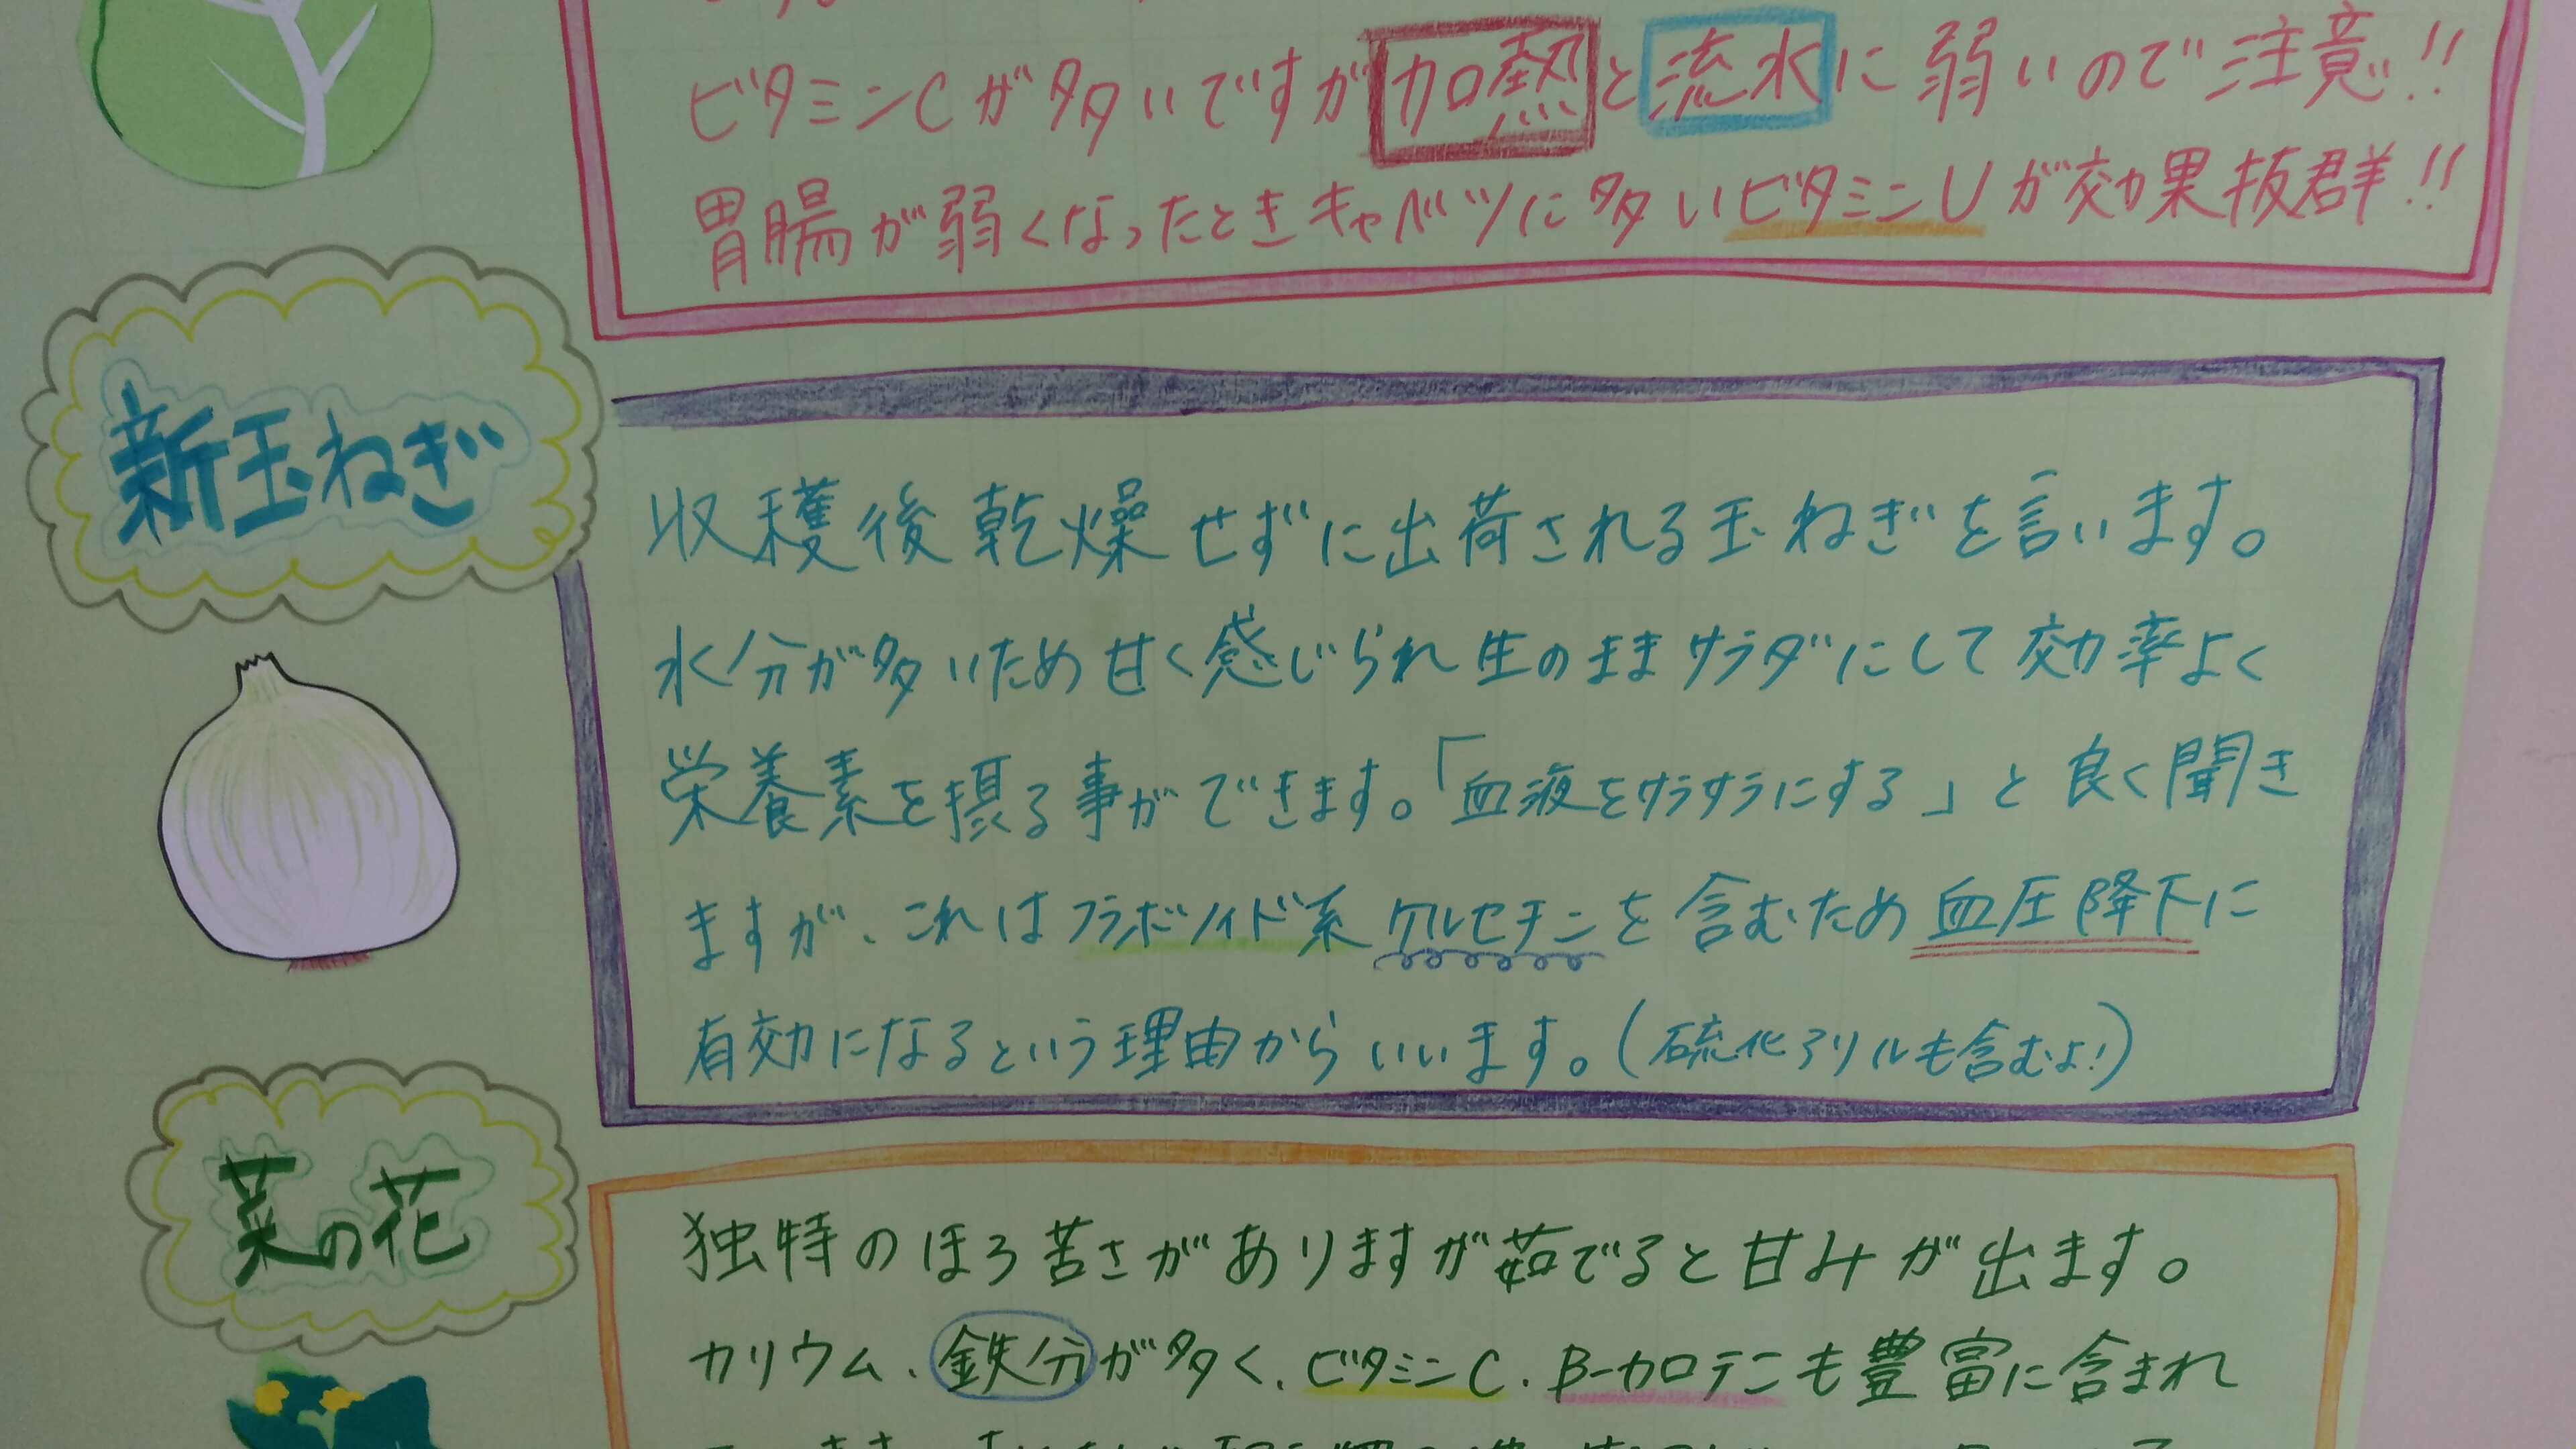 ビタミンCが多いですが加熱と流水に弱いので注意!!
胃腸が弱くなったときキャベツに多いビタミンUが効果抜群!!
新玉ねぎ
収穫後乾燥せずに出荷される玉ねぎを言います。
水分が多いため甘く感じられ生のままサラダにして効率よく
栄養素を摂る事ができます。「血液をサラサラにする」と良く聞き
ますが、これはフラボノイド系ケルセチンを含むため血圧降下に
有効になるという理由からいいます。(硫化アリルも含むよ!)
菜の花
独特のほろ苦さがありますが茹でると甘みが出ます。
カリウム、鉄分が多く、ビタミンC、β-カロテンも豊富に含まれ